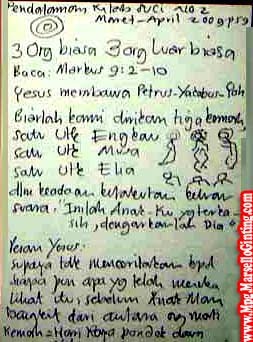 Pendalaman Kitab Suci No 2
Maret-April 2009. p59
3 Org biasa 3 org luar biasa
Baca: Markus 9:2-10
Yesus membawa Petrus-Yakobus-Yoh
Biarlah kami dirikan tiga kemah,
satu utk Engkau
satu utk Musa
satu utk Elia
dlm keadaan ketakutan keluar
suara. "Inilah Anak-Ku yg terka-
sih, dengarkan-lah Dia"
Pesan Yesus:
supaya tdk menceritakan kpd
siapa pun apa yg telah mereka
lihat itu, sebelum Anak Man
bangkit dari antara org mati
Kemah =
www.Mpg.MarselloGinting.com